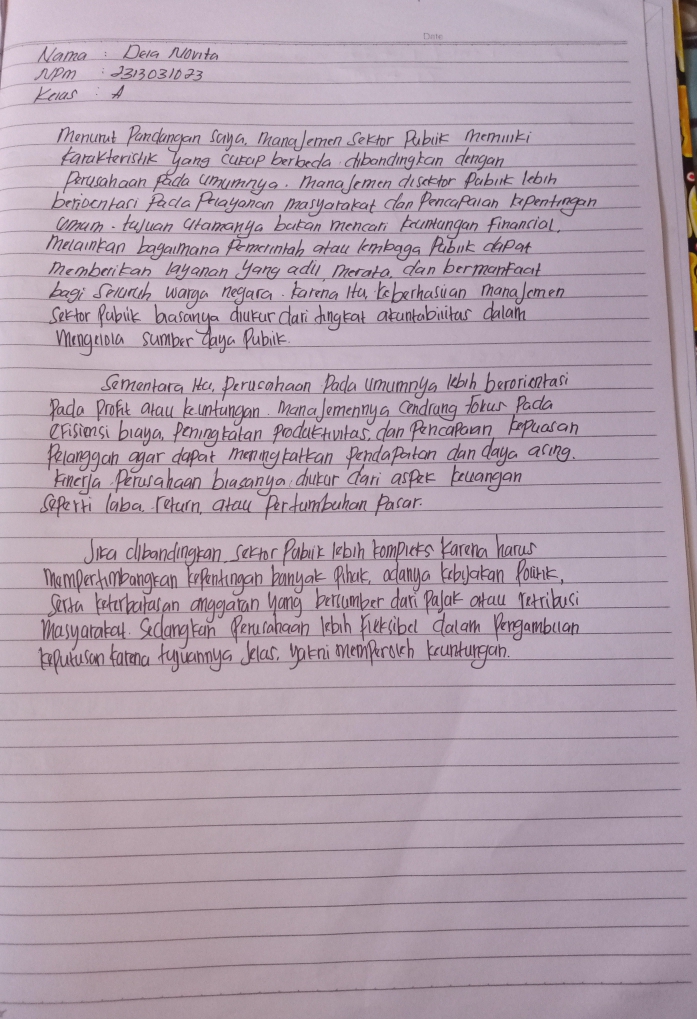 Date
Nama : Dera Novita
NPM : 2313031023
Kelas : A
Menurut Pandangan saya, manajemen sektor Publik memiliki
karakteristik yang cukup berbeda dibandingkan dengan
Perusahaan Pada umumnya. manajemen disektor Publik lebih
berorientasi Pada Pelayanan masyarakat dan Pencapaian kepentingan
umum. tujuan utamanya bukan mencari keuntungan financial,
melainkan bagaimana Pemerintah atau lembaga Publik dapat
memberikan layanan yang adil, merata, dan bermanfaat
bagi seluruh warga negara. karena itu, keberhasilan manajemen
sektor Publik biasanya diukur dari tingkat akuntabilitas dalam
mengelola sumber daya Publik.
Sementara itu, Perusahaan Pada umumnya lebih berorientasi
Pada Profit atau keuntungan. manajemennya cendrung fokus Pada
efisiensi biaya, Peningkatan Produktivitas, dan Pencapaian kepuasan
Pelanggan agar dapat meningkatkan pendapatan dan daya asing.
kinerja Perusahaan biasanya diukur dari aspek keuangan
seperti laba, return, atau Pertumbuhan Pasar.
Jika dibandingkan, sektor Publik lebih kompleks karena harus
mempertimbangkan kepentingan banyak Pihak, adanya kebijakan Politik,
serta keterbatasan anggaran yang bersumber dari Pajak atau retribusi
masyarakat. Sedangkan Perusahaan lebih fleksibel dalam Pengambilan
keputusan karena tujuannya jelas, yakni memperoleh keuntungan.